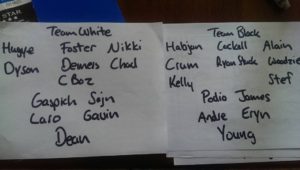 STAR
Team White
Hugye Foster Nikki
Dyson Demers Chad
C Boz
Gaspich Sojn
Caro Gavin
Dean
Team Black
Habijan Cockall Alain
Crum Ryan Stuck Woodzie
Kelly Stef
Podio James
Andre Eryn
Young